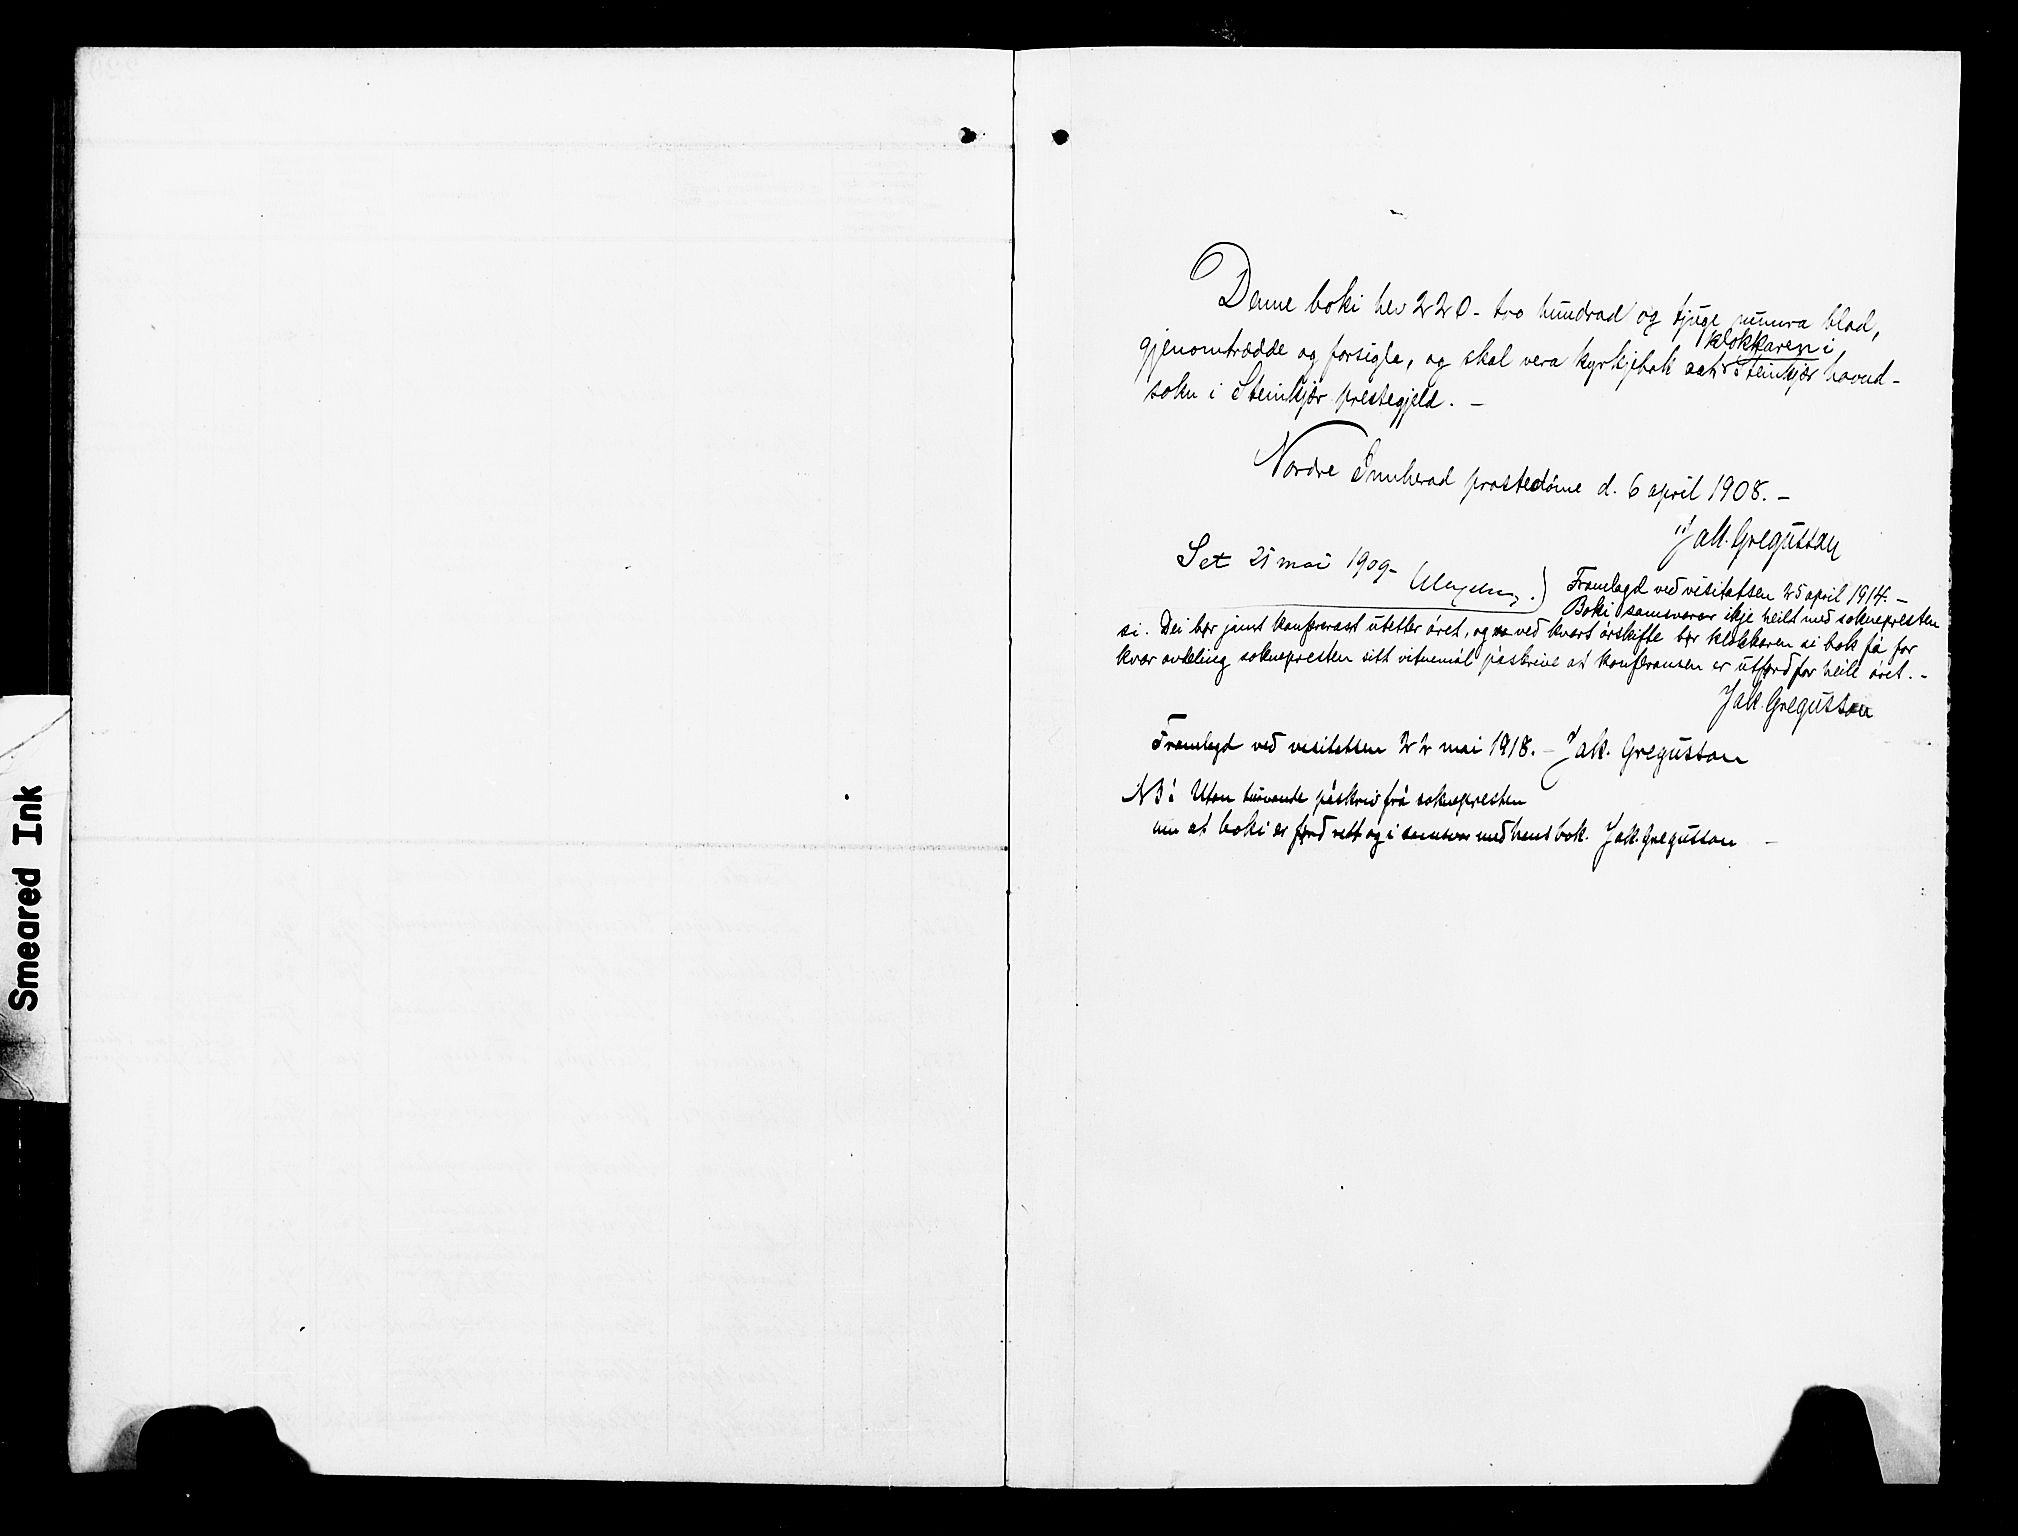 Smeared Ink
Denne boki hev 220 - tvo hundrad og tjuge numra blad,
gjenomtrædde og forsigla, og skal vera kyrkjebok åt klokkaren i Steinkjær hovud-
sokn i Steinkjær prestegjeld. -
Nordre Innherad prostedöme d. 6 april 1908. -
Jak. Gregusson
Set 25 mai 1909 -
Framlagd ved visitatsen 25 april 1914. -
Boki samsvarar ikje heilt med soknepresten
si. Dei bør jamt konfererast utetter året, og ved kvart årskifte bør klokkaren si bok få for
kvar avdeling soknepresten sitt vitnemål påskrive at konferansen er utførd for heile året. -
Jak. Gregusson
Framlagd ved visitatsen 22 mai 1918. - Jak. Gregusson
NB: Utan turvande påskriv frå soknepresten
um at boki er førd rett og i samsvar med hans bok. Jak. Gregusson -